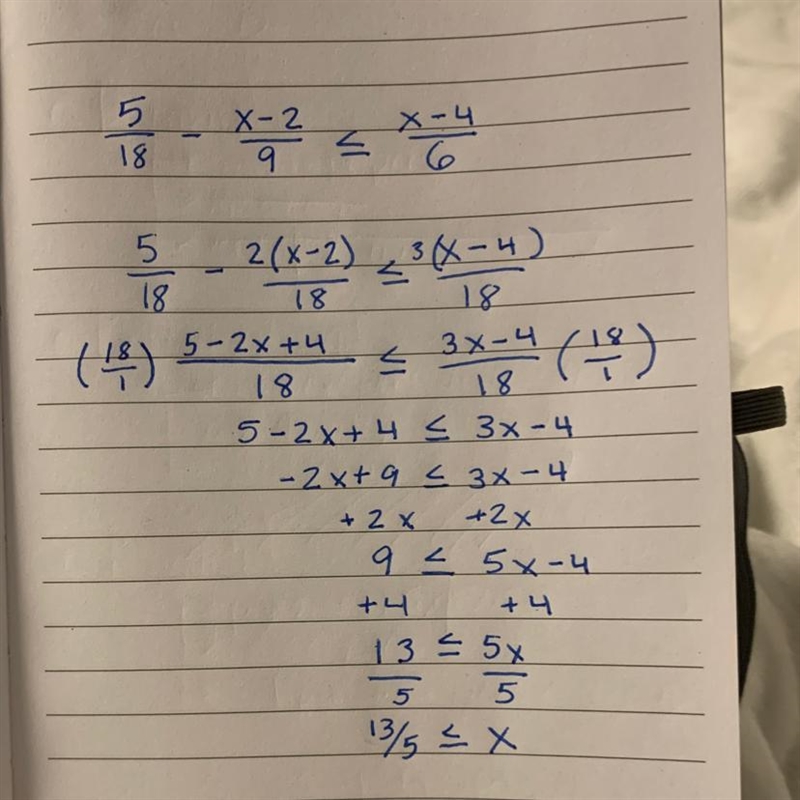 5/18 - (x-2)/9 ≤ (x-4)/6
5/18 - 2(x-2)/18 ≤ 3(x-4)/18
(18/1) (5-2x+4)/18 ≤ (3x-4)/18 (18/1)
5-2x+4 ≤ 3x-4
-2x+9 ≤ 3x-4
+2x +2x
9 ≤ 5x-4
+4 +4
13/5 ≤ 5x/5
13/5 ≤ x